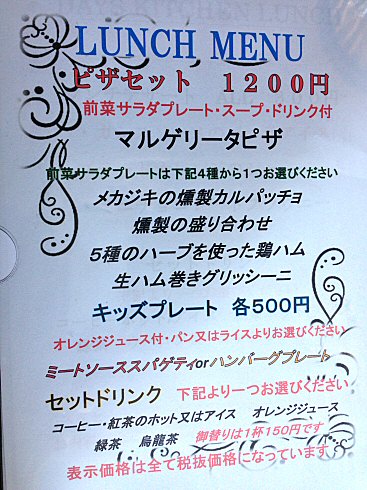 LUNCH MENU
ピザセット　１２００円
前菜サラダプレート・スープ・ドリンク付
マルゲリータピザ
前菜サラダプレートは下記４種から１つお選びください
メカジキの燻製カルパッチョ
燻製の盛り合わせ
５種のハーブを使った鶏ハム
生ハム巻きグリッシーニ
キッズプレート　各５００円
オレンジジュース付・パン又はライスよりお選びください
ミートソーススパゲティorハンバーグプレート
セットドリンク　下記より一つお選びください
コーヒー・紅茶のホット又はアイス　オレンジジュース
緑茶　烏龍茶　御替りは１杯１５０円です
表示価格は全て税抜価格になっています